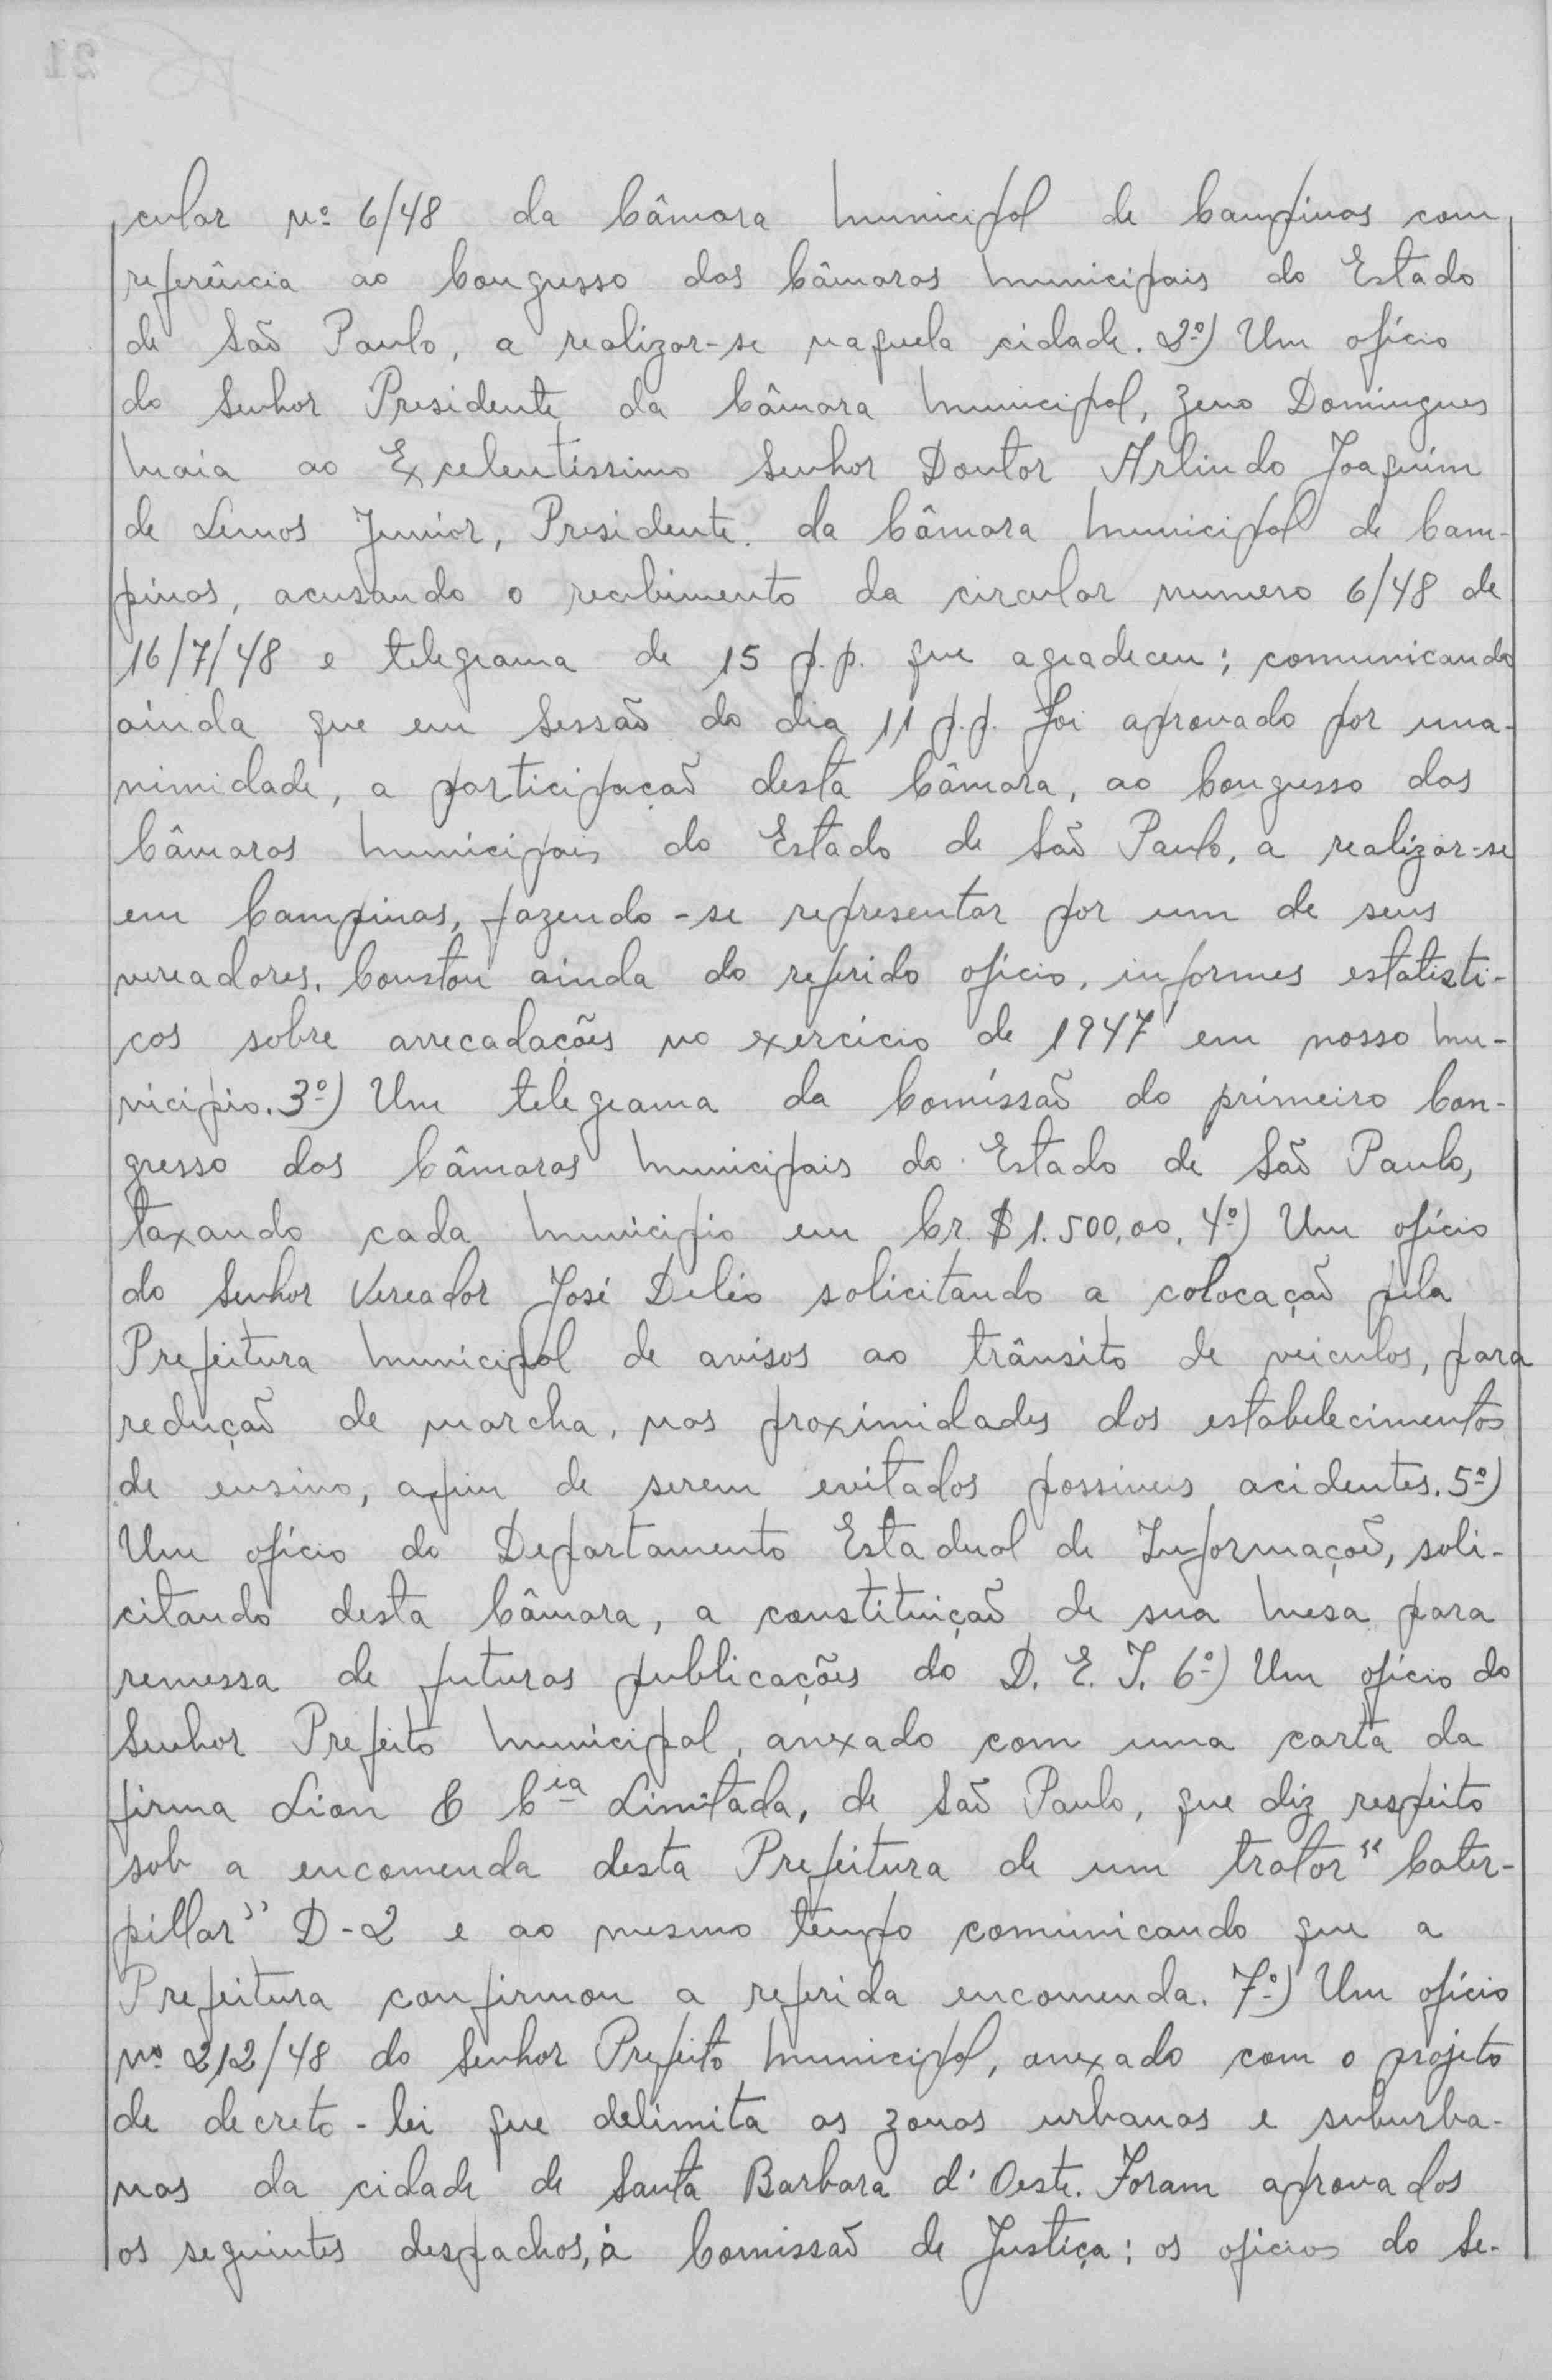 cular nº 6/48 da Câmara Municipal de Campinas com
referência ao Congresso das Câmaras Municipais do Estado
de São Paulo, a realizar-se naquela cidade. 2º) Um ofício
do Senhor Presidente da Câmara Municipal, Zeno Domingues
Maia ao Excelentíssimo Senhor Doutor Arlindo Joaquim
de Lemos Junior, Presidente da Câmara Municipal de Cam-
pinas, acusando o recebimento da circular numero 6/48 de
16/7/48 e telegrama de 15 p.p. que agradeceu; comunicando
ainda que em Sessão do dia 11 p.p. foi aprovado por una-
nimidade, a participação desta Câmara, ao Congresso das
Câmaras Municipais do Estado de São Paulo, a realizar-se
em Campinas, fazendo-se representar por um de seus
vereadores. Constou ainda do referido ofício, informes estatisti-
cos sobre arrecadações no exercício de 1947 em nosso Mu-
nicipio. 3º) Um telegrama da Comissão do primeiro Con-
gresso das Câmaras Municipais do Estado de São Paulo,
taxando cada Municipio em Cr.$1.500,00. 4º) Um ofício
do Senhor Vereador José Deléo solicitando a colocação pela
Prefeitura Municipal de avisos ao trânsito de veiculos, para
redução de marcha, nas proximidades dos estabelecimentos
de ensino, afim de serem evitados possiveis acidentes. 5º)
Um ofício do Departamento Estadual de Informação, soli-
citando desta Câmara, a constituição de sua Mesa para
remessa de futuras publicações do D. E. I. 6º) Um ofício do
Senhor Prefeito Municipal, anexado com uma carta da
firma Lion & Cia Limitada, de São Paulo, que diz respeito
sob a encomenda desta Prefeitura de um trator "Cater-
pillar" D-2 e ao mesmo tempo comunicando que a
Prefeitura confirmou a referida encomenda. 7º) Um ofício
nº 212/48 do Senhor Prefeito Municipal, anexado com o projeto
de decreto-lei que delimita as zonas urbanas e suburba-
nas da cidade de Santa Barbara d'Oeste. Foram aprovados
os seguintes despachos, à Comissão de Justiça: os oficios do Se-